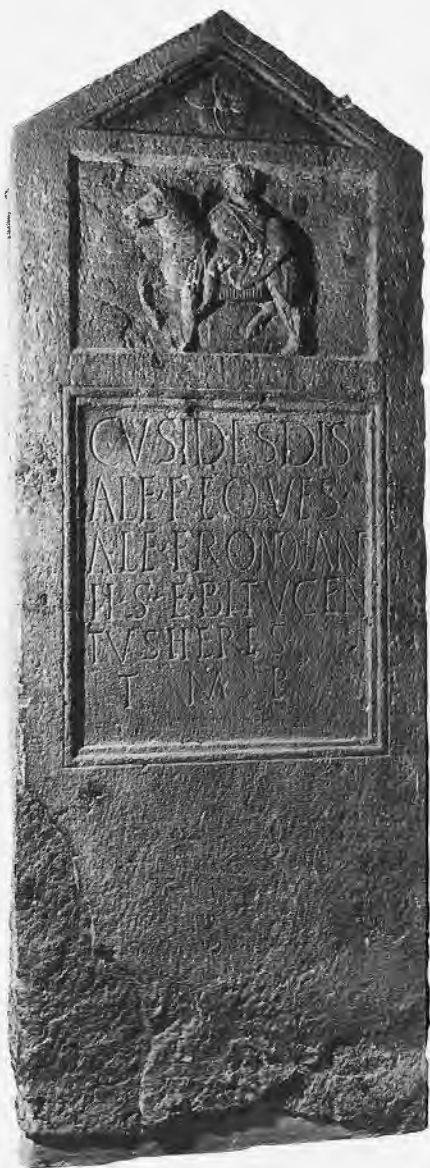 CVSIDES DIS
ALE·F·EQVES
ALE·FRONO·AN
H·S·E·BITVCEN
TVS HERES
T M B